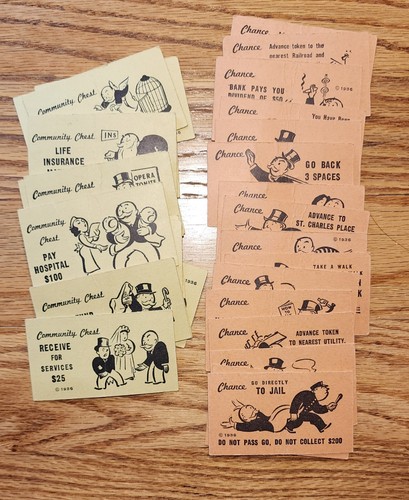 Community Chest
Community Chest
INS
LIFE
INSURANCE
Community Chest
OPERA
TONITE
Community
Chest
PAY
HOSPITAL
$100
Community Chest
1936
Community Chest
RECEIVE
FOR
SERVICES
$25
© 1936
Chance
Chance
Advance token to the
nearest Railroad and
Chance
BANK PAYS YOU
DIVIDEND OF $50
© 1936
Chance
You Have Been
Chance
Chance
GO BACK
3 SPACES
Chance
Chance
ADVANCE TO
ST. CHARLES PLACE
Chance
© 1936
Chance
TAKE A WALK
Chance
Chance
ADVANCE TOKEN
TO NEAREST UTILITY.
© 1936
Chance
Chance
GO DIRECTLY
TO JAIL
© 1936
DO NOT PASS GO, DO NOT COLLECT $200